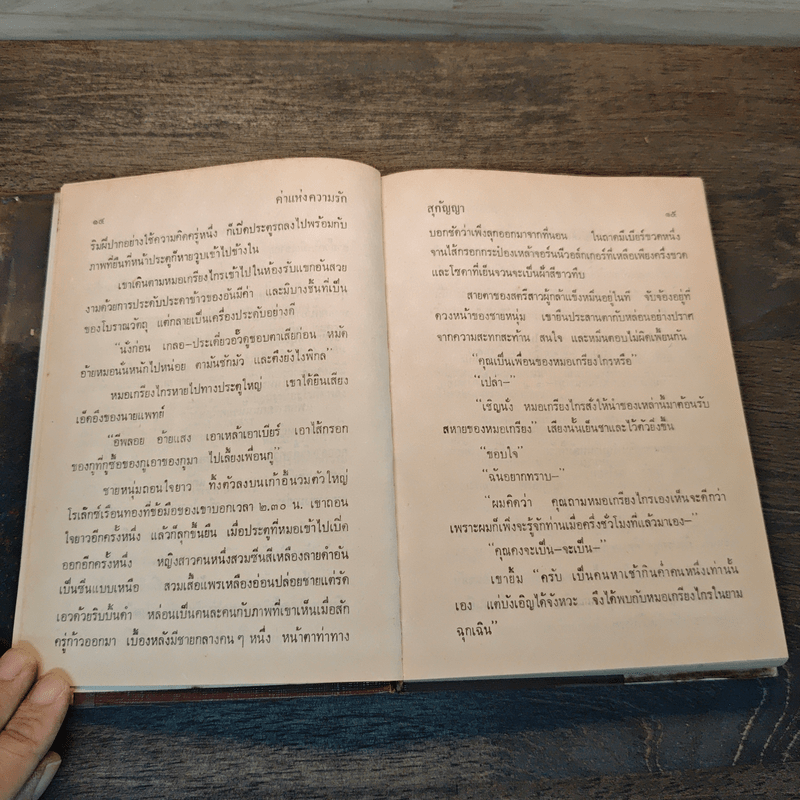 ค่าแห่งความรัก
๑๔
ริมฝีปากอย่างใช้ความคิดครู่หนึ่ง ก็เปิดประตูรถลงไปพร้อมกับ
ภาพที่ยืนที่หน้าประตูก็หายวูบเข้าไปข้างใน
เขาเดินตามหมอเกรียงไกรเข้าไปในห้องรับแขกอันสวย
งามด้วยการประดับประดาข้าวของอันมีค่า และมีบางชิ้นที่เป็น
ของโบราณวัตถุ แต่กลายเป็นเครื่องประดับอย่างดี
“นั่งก่อน เกลอ-ประเดี๋ยวอั๊วดูขอบตาเสียก่อน หมัด
อ้ายหมอนั่นหนักไปหน่อย ตามันชักมัว และตึงยังไงพิกล”
หมอเกรียงไกรหายไปทางประตูใหญ่ เขาได้ยินเสียง
เอ็ดอึงของนายแพทย์
“อีพลอย อ้ายแสง เอาเหล้าเอาเบียร์ เอาไส้กรอก
ของกูที่กูซื้อของกูเอาของกูมา ไปเลี้ยงเพื่อนกู”
ชายหนุ่มถอนใจยาว ทิ้งตัวลงบนเก้าอี้นวมตัวใหญ่
โรเล็กซ์เรือนทองที่ข้อมือของเขาบอกเวลา ๒.๓๐ น. เขาถอน
ใจยาวอีกครั้งหนึ่ง แล้วก็ลุกขึ้นยืน เมื่อประตูที่หมอเข้าไปเปิด
ออกอีกครั้งหนึ่ง หญิงสาวคนหนึ่งสวมซิ่นสีเหลืองลายดำอัน
เป็นซิ่นแบบเหนือ สวมเสื้อแพรเหลืองอ่อนปล่อยชายแต่รัด
เอวด้วยริบบิ้นดำ หล่อนเป็นคนละคนกับภาพที่เขาเห็นเมื่อสัก
ครู่ก้าวออกมา เบื้องหลังมีชายกลางคน ๆ หนึ่ง หน้าตาท่าทาง
สุกัญญา
๑๕
บอกชัดว่าเพิ่งลุกออกมาจากที่นอน ในถาดมีเบียร์ขวดหนึ่ง
จานไส้กรอกกระป๋องเหล้าจอร์นนี่วอล์กเกอร์ที่เหลือเพียงครึ่งขวด
และโซดาที่เย็นจนจะเป็นฝ้าสีขาวทึบ
สายตาของสตรีสาวผู้กล้าแข็งหมิ่นอยู่ในที จับจ้องอยู่ที่
ดวงหน้าของชายหนุ่ม เขายืนประสานตากับหล่อนอย่างปราศ
จากความสะทกสะท้าน สนใจ และหมิ่นตอบไม่ผิดเพี้ยนกัน
“คุณเป็นเพื่อนของหมอเกรียงไกรหรือ”
“เปล่า-”
“เชิญนั่ง หมอเกรียงไกรสั่งให้นำของเหล่านี้มาต้อนรับ
สหายของหมอเกรียง” เสียงนั้นเย็นชาและไว้ตัวยิ่งขึ้น
“ขอบใจ”
“ฉันอยากทราบ-”
“ผมคิดว่า คุณถามหมอเกรียงไกรเองเห็นจะดีกว่า
เพราะผมก็เพิ่งจะรู้จักท่านเมื่อครึ่งชั่วโมงที่แล้วมาเอง-”
“คุณคงจะเป็น-จะเป็น-”
เขายิ้ม “ครับ เป็นคนหาเช้ากินค่ำคนหนึ่งเท่านั้น
เอง แต่บังเอิญได้จังหวะ จึงได้พบกับหมอเกรียงไกรในยาม
ฉุกเฉิน”